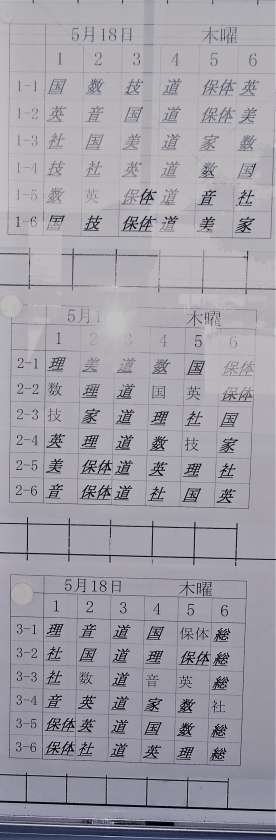 5月18日 木曜
1 2 3 4 5 6
1-1 国 数 技 道 保体 英
1-2 英 音 国 道 保体 美
1-3 社 国 美 道 家 数
1-4 技 社 英 道 数 国
1-5 数 英 保体 道 音 社
1-6 国 技 保体 道 美 家
5月1 木曜
1 2 3 4 5 6
2-1 理 美 道 数 国 保体
2-2 数 理 道 国 英 保体
2-3 技 家 道 理 社 国
2-4 英 理 道 数 技 家
2-5 美 保体 道 英 理 社
2-6 音 保体 道 社 国 英
5月18日 木曜
1 2 3 4 5 6
3-1 理 音 道 国 保体 総
3-2 社 国 道 理 保体 総
3-3 社 数 道 音 英 総
3-4 音 英 道 家 数 社
3-5 保体 英 道 国 数 総
3-6 保体 社 道 英 理 総